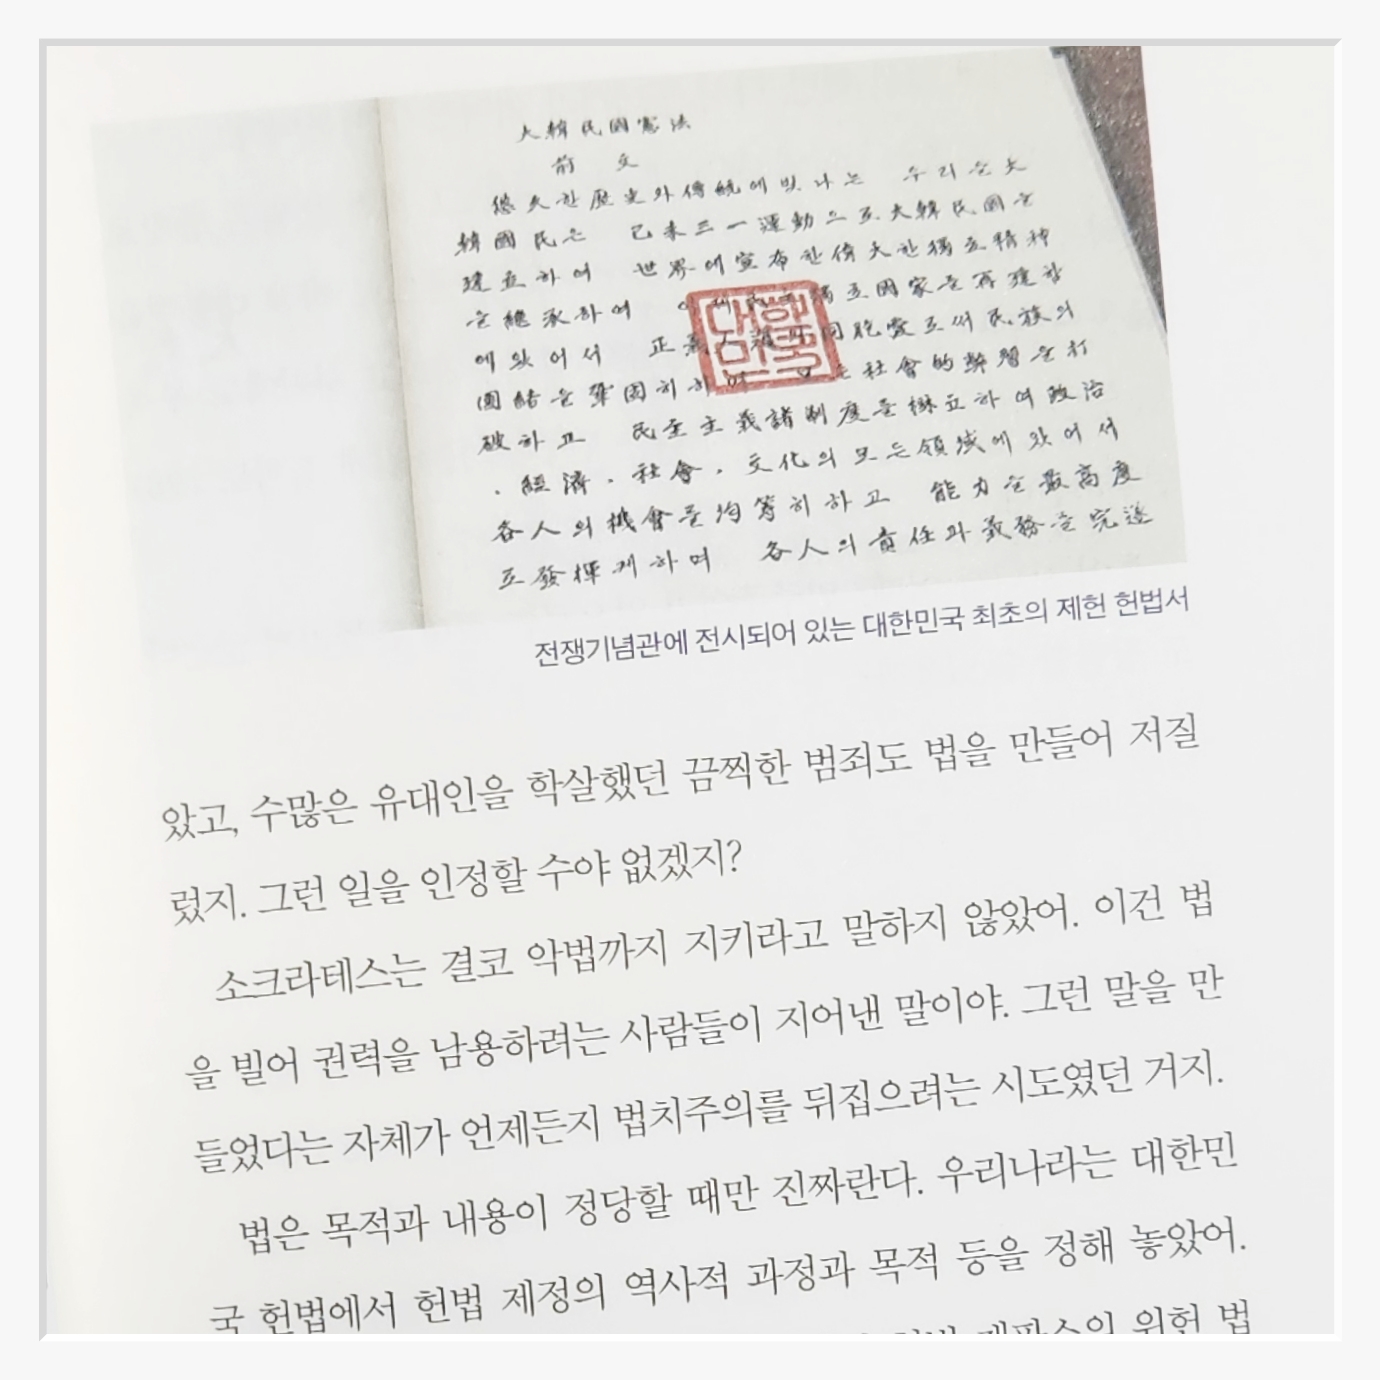 大韓民國憲法
前 文
悠久한歷史와傳統에빛나는 우리들大
韓國民은 己未三一運動으로大韓民國을
建立하여 世界에宣布한偉大한獨立精神
을繼承하여 이제民主獨立國家를再建함
에있어서 正義人道와同胞愛로써民族의
團結을鞏固히하며 모든社會的弊習을打
破하고 民主主義諸制度를樹立하여政治
, 經濟, 社會, 文化의모든領域에있어서
各人의機會를均等히하고 能力을最高度
로發揮케하며 各人의責任과義務를完遂
대한
민국
전쟁기념관에 전시되어 있는 대한민국 최초의 제헌 헌법서
았고, 수많은 유대인을 학살했던 끔찍한 범죄도 법을 만들어 저질
렀지. 그런 일을 인정할 수야 없겠지?
소크라테스는 결코 악법까지 지키라고 말하지 않았어. 이건 법
을 빌어 권력을 남용하려는 사람들이 지어낸 말이야. 그런 말을 만
들었다는 자체가 언제든지 법치주의를 뒤집으려는 시도였던 거지.
법은 목적과 내용이 정당할 때만 진짜란다. 우리나라는 대한민
국 헌법에서 헌법 제정의 역사적 과정과 목적 등을 정해 놓았어.
위헌 법